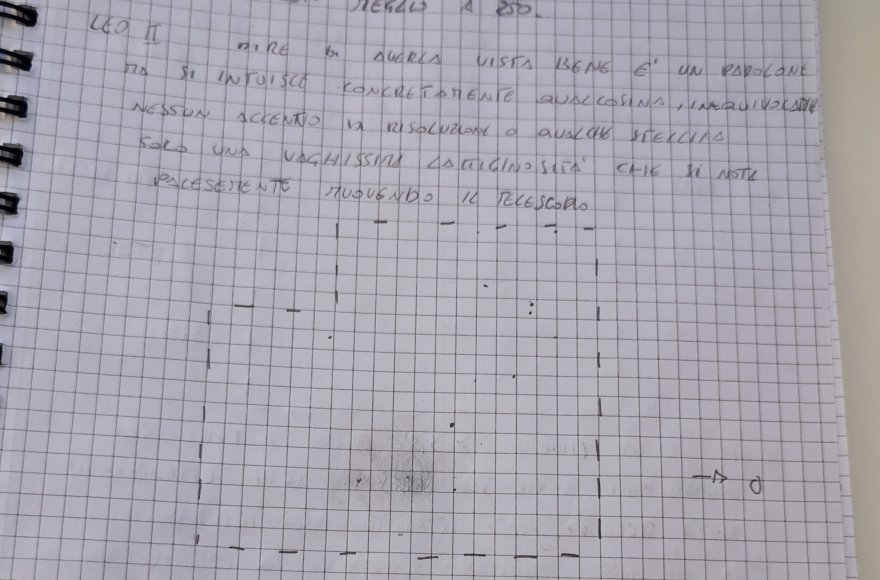 MEGLIO A 250.
LEO II
DIRE DI AVERLA VISTA BENE E' UN PAROLONE
MA SI INTUISCE CONCRETAMENTE QUALCOSINA, INEQUIVOCABILE
NESSUN ACCENNO DI RISOLUZIONE O QUALCHE STELLINA
SOLO UNA VAGHISSIMA LATTIGINOSITA' CHE SI NOTA
PALESEMENTE MUOVENDO IL TELESCOPIO
→ O